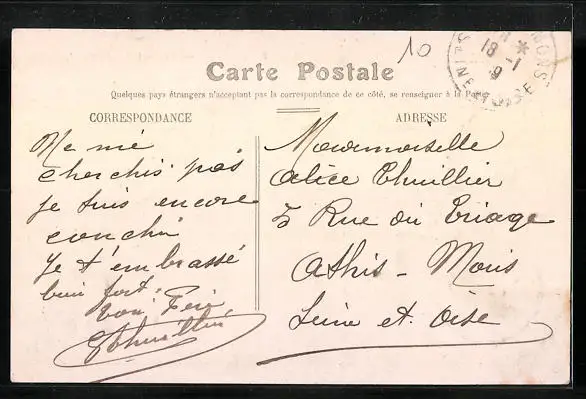 10
18 -1
9
MONS *
SEINE-ET-OISE
Carte Postale
Quelques pays étrangers n'acceptant pas la correspondance de ce côté, se renseigner à la Poste
CORRESPONDANCE
ADRESSE
Ne me
cherchis pas
je suis encore
conchi
Je t'embrassé
bien fort.
ton Père
EThuillier
Mademoiselle
Alice Thuillier
5 Rue du Triage
Athis - Mons
Seine et Oise